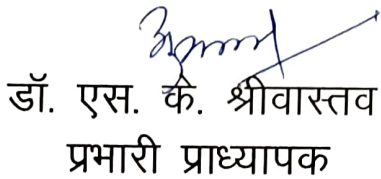 डॉ. एस. के. श्रीवास्तव
प्रभारी प्राध्यापक